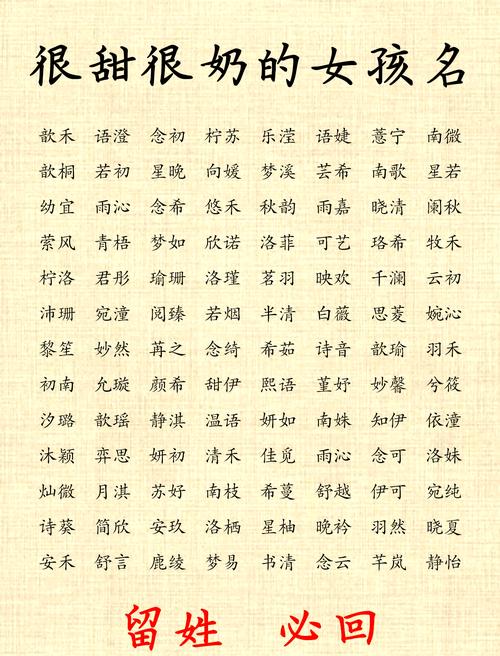 很甜很奶的女孩名
歆禾 语澄 念初 柠苏 乐滢 语婕 薏宁 南微
歆桐 若初 星晚 向媛 梦溪 芸希 南歌 星若
幼宜 雨沁 念希 悠禾 秋韵 雨嘉 晓清 阑秋
萦风 青梧 梦如 欣诺 洛菲 可艺 珞希 牧禾
柠洛 君彤 瑜珊 洛瑾 茗羽 映欢 千澜 云初
沛珊 宛潼 阅臻 若烟 半清 白薇 思菱 婉沁
黎笙 妙然 苒之 念绮 希茹 诗音 歆瑜 羽禾
初南 允璇 颜希 甜伊 熙语 堇妤 妙馨 兮筱
汐璐 歆瑶 静淇 温语 妍如 南姝 知伊 依潼
沐颖 弈思 妍初 清禾 佳觅 雨沁 念可 洛妹
灿微 月淇 苏好 南枝 希蔓 舒越 伊可 宛纯
诗葵 简欣 安玖 洛栖 星柚 晚衿 羽然 晓夏
安禾 舒言 鹿绫 梦易 书清 念云 芊岚 静怡
留姓 必回